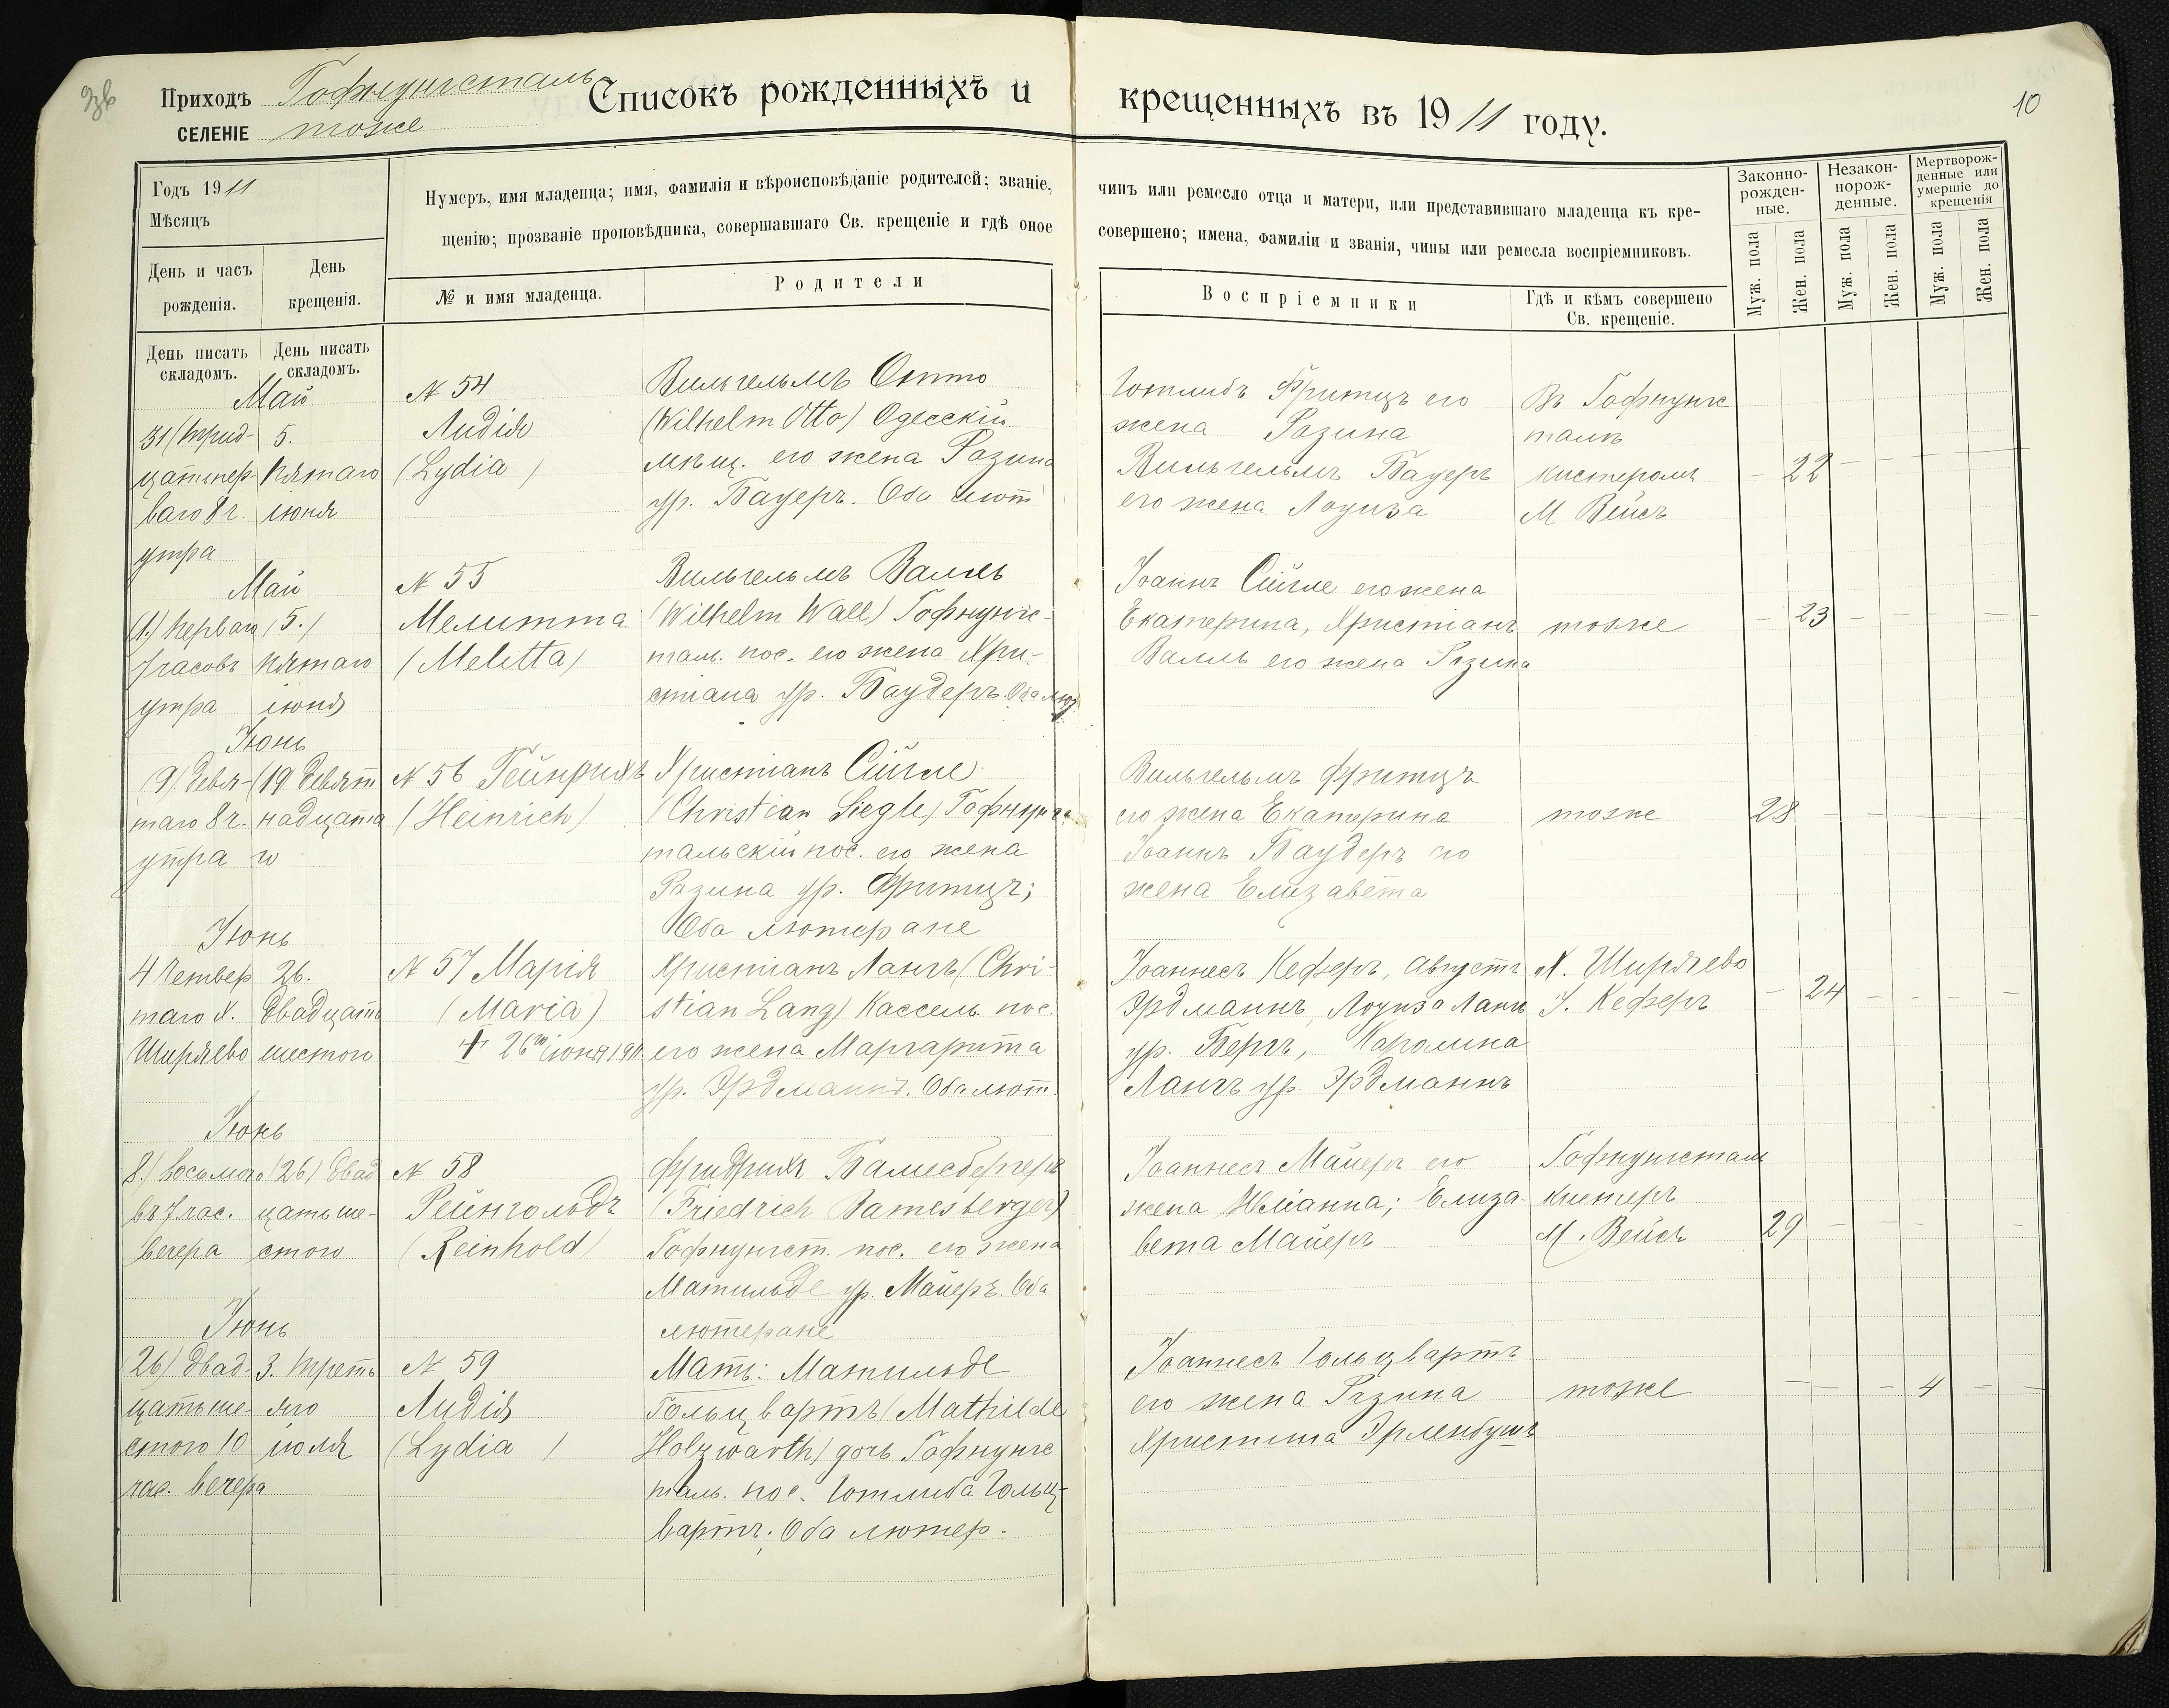 Приходъ Гофнунгсталь
СЕЛЕНІЕ тоже
Списокъ рожденныхъ и крещенныхъ въ 1911 году.
10
Годъ 1911
Мѣсяцъ
Нумеръ, имя младенца; имя, фамилія и вѣроисповѣданіе родителей; званіе, чинъ или ремесло отца и матери, или представившаго младенца къ кре-
щенію; прозваніе проповѣдника, совершавшаго Св. крещеніе и гдѣ оное совершено; имена, фамиліи и званія, чины или ремесла воспріемниковъ.
Законно-
рожден-
ные.
Незакон-
норож-
денные.
Мертворож-
денные или
умершіе до
крещенія
Муж. пола
Жен. пола
Муж. пола
Жен. пола
Муж. пола
Жен. пола
День и часъ
рожденія.
День
крещенія.
№ и имя младенца.
Родители
Воспріемники
Гдѣ и кѣмъ совершено
Св. крещеніе.
День писать
складомъ.
День писать
складомъ.
Май
31 (трид-
цатьпер-
ваго 8 ч.
утра
5.
пятаго
іюня
№ 54
Лидія
(Lydia)
Вильгельмъ Отто
(Wilhelm Otto) Одесскій
мѣщ. его жена Розина
ур. Бауеръ. Оба лют
Готлибъ Фритцъ его
жена Розина
Вильгельмъ Бауеръ
его жена Лоуиза
Въ Гофнунгс
талѣ
кистеромъ
М Вейсъ
- 22 - - - -
Май
(1.) перваго
7 часовъ
утра
(5.)
пятаго
іюня
№ 55
Мелитта
(Melitta)
Вильгельмъ Валль
(Wilhelm Wall) Гофнунгс-
таль. пос. его жена Хри-
стіана ур. Баудеръ. Оба лют
Іоаннъ Сигле его жена
Екатерина, Христіанъ
Валль его жена Розина
тоже
- 23 - - - -
Іюнь
(9) девя-
таго 8 ч.
утра
(19 девят
надцата
го
№ 56 Гейнрихъ
(Heinrich)
Христіанъ Сигле
(Christian Siegle) Гофнунгс
тальскій пос. его жена
Розина ур. Фритцъ;
Оба лютеране
Вильгельмъ Фритцъ
его жена Екатерина
Іоаннъ Баудеръ его
жена Елизавета
тоже
28 - - - - -
Іюнь
4 четвер
таго х.
Ширяево
26.
двадцать
шестого
№ 57 Марія
(Maria)
† 26го іюня 1911
Христіанъ Лангъ (Chri-
stian Lang) Кассель. пос.
его жена Маргарита
ур. Эрдманнъ. Оба лют.
Іоаннесъ Кеферъ, Августъ
Эрдманнъ, Лоуиза Лангъ
ур. Бергъ, Каролина
Лангъ ур. Эрдманнъ
Х. Ширяево
І. Кеферъ
- 24 - - - -
Іюнь
8.) восьмого
въ 7 час.
вечера
(26) двад
цать ше-
стого
№ 58
Рейнгольдъ
(Reinhold)
Фридрихъ Бамесбергеръ
(Friedrich Bamesberger)
Гофнунгст. пос. его жена
Матильде ур. Майеръ. Оба
лютеране
Іоаннесъ Майеръ его
жена Юліанна; Елиза-
вета Майеръ
Гофнунгсталь
кистеръ
М. Вейсъ
29 - - - - -
Іюнь
(26) двад-
цатьше-
стого 10
час. вечера
3. треть
яго
іюля
№ 59
Лидія
(Lydia)
Мать: Матильде
Гольцвартъ (Mathilde
Holzwarth) дочь Гофнунгс
таль. пос. Готлиба Гольц-
вартъ; Оба лютер.
Іоаннесъ Гольцвартъ
его жена Розина
Христина Эрленбушъ
тоже
- - - 4 - -